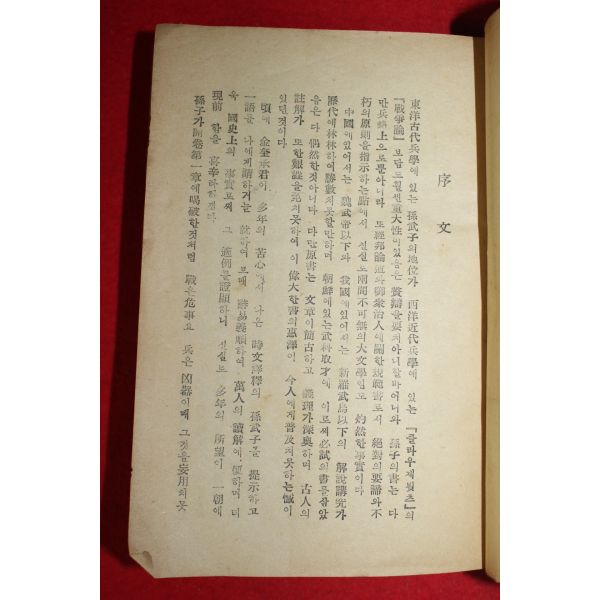 序文
東洋古代兵學에 있는 孫武子의 地位가 西洋近代兵學에 있는 『클라우제윗츠』의
『戰爭論』보담도 훨신 重大性이 있음은 贅辯을 要치 아니할바어니와 孫子의 書는 다
만 兵略上으로뿐아니라 또 經邦論道와 御衆治人에 關한 規範書로서 絕對의 要諦와 不
朽의 原則을 指示하는 點에서 실실로 兩間不可無의 大文學임도 灼然한 事實이다
中國에 있어서는 魏武帝以下와 我國에 있어서는 新羅武烏以下의 解說講究가
歷代에 林林하여 勝數치 못할만하며 朝鮮에 있는 武科取才에 이로써 必試의 書를 삼았
음은 다 偶然한것아니다 다만 原書는 文章이 簡古하고 義理가 深奧하며 古人의
註解가 또한 艱澁을 免치못하여 이 偉大한 書의 惠澤이 今人에게 普及치못하는 憾이
있던것이다
頃에 金奎承君이 多年의 苦心에서 나온 時文譯釋의 孫武子를 提示하고
一語를 나에게 請하거늘 就하여 보매 辭易義順하여 萬人의 讀解에 便하며 더
욱 國史上의 事實로써 그 適例를 證顯하니 실실로 多年의 所望이 一朝에
現前함을 喜幸타하겠다
孫子가 開卷第一章에 喝破한것처럼 戰은 危事요 兵은 凶器이매 그것을 妄用치못